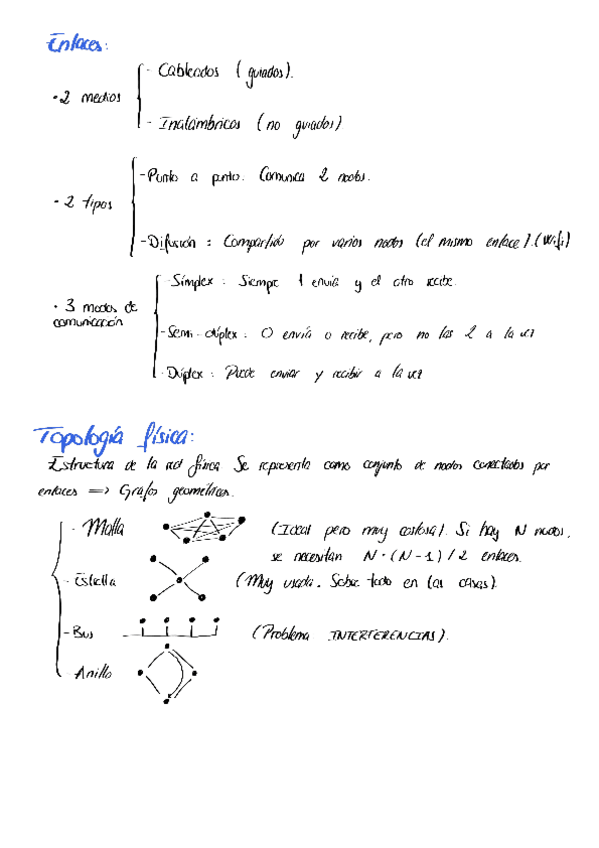 Enlaces:
· 2 medios
- Cableados (guiados).
- Inalámbricos (no guiados)
· 2 tipos
- Punto a punto: Comunica 2 nodos.
- Difusión: Compartido por varios nodos (el mismo enlace).(Wifi)
· 3 modos de
comunicación
- Símplex: Siempre 1 envía y el otro recibe.
- Semi-dúplex: O envía o recibe, pero no las 2 a la vez
- Dúplex: Puede enviar y recibir a la vez
Topología física:
Estructura de la red física Se representa como conjunto de nodos conectados por
enlaces => Grafos geométricos.
- Malla (Ideal pero muy costosa). Si hay N nodos,
se necesitan N·(N-1)/2 enlaces.
- Estrella (Muy usada. Sobre todo en las casas)
- Bus (Problema INTERFERENCIAS).
Anillo